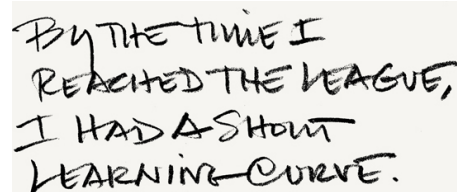 BY THE TIME I
REACHED THE LEAGUE,
I HAD A SHORT
LEARNING CURVE.